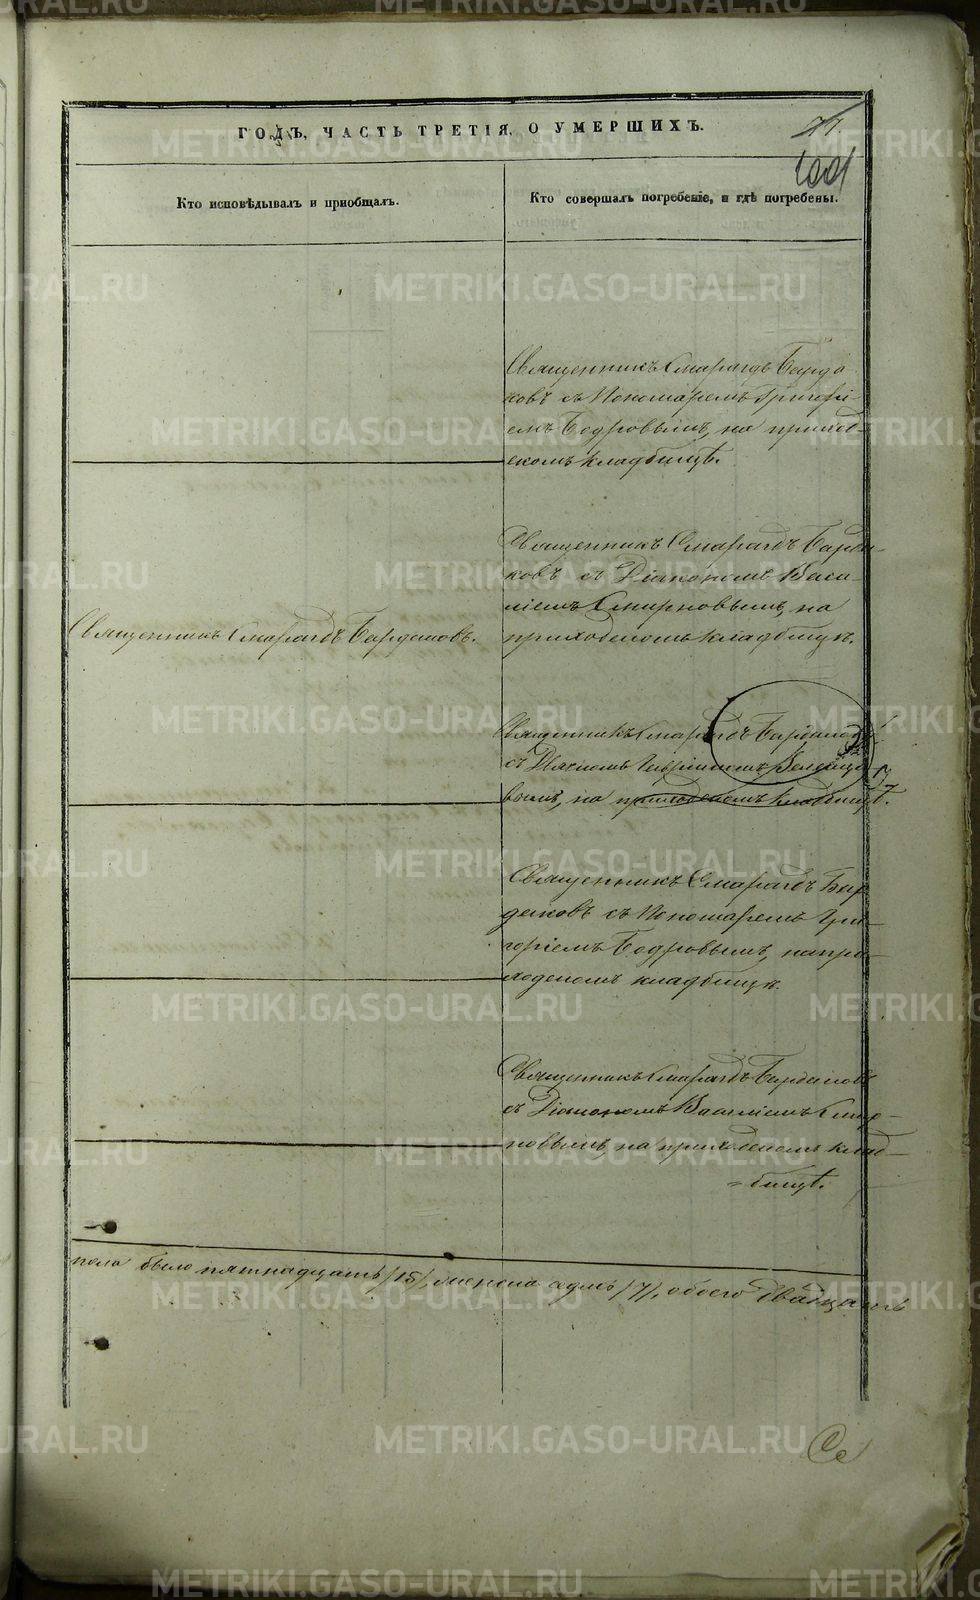 ГОДЪ, ЧАСТЬ ТРЕТІЯ, О УМЕРШИХЪ.
77
Кто исповѣдывалъ и пріобщалъ.
Кто совершалъ погребеніе, и гдѣ погребены.
Священникъ Смарагдъ Бирда
ковъ съ Пономаремъ Григорі-
емъ Бодровымъ, на приход-
скомъ кладбищѣ.
Священникъ Смарагдъ Бирда-
ковъ съ Діакономъ Васи-
ліемъ Смирновымъ, на
приходскомъ кладбищѣ.
Священникъ Смарагдъ Бирдаковъ.
Священникъ Смарагдъ Бирдаковъ
съ Дьячкомъ
вымъ, на приходскомъ кладбищѣ.
Священникъ Смарагдъ Бир
даковъ съ Пономаремъ Гри-
горіемъ Бодровымъ, на при-
ходскомъ кладбищѣ.
Священникъ Смарагдъ Бирдаковъ
съ Діакономъ Василіемъ Смир-
новымъ на приходскомъ клад-
=бищѣ.
пола было пятнадцать /15/, женска седмь /7/, обоего двадцать
METRIKI.GASO-URAL.RU